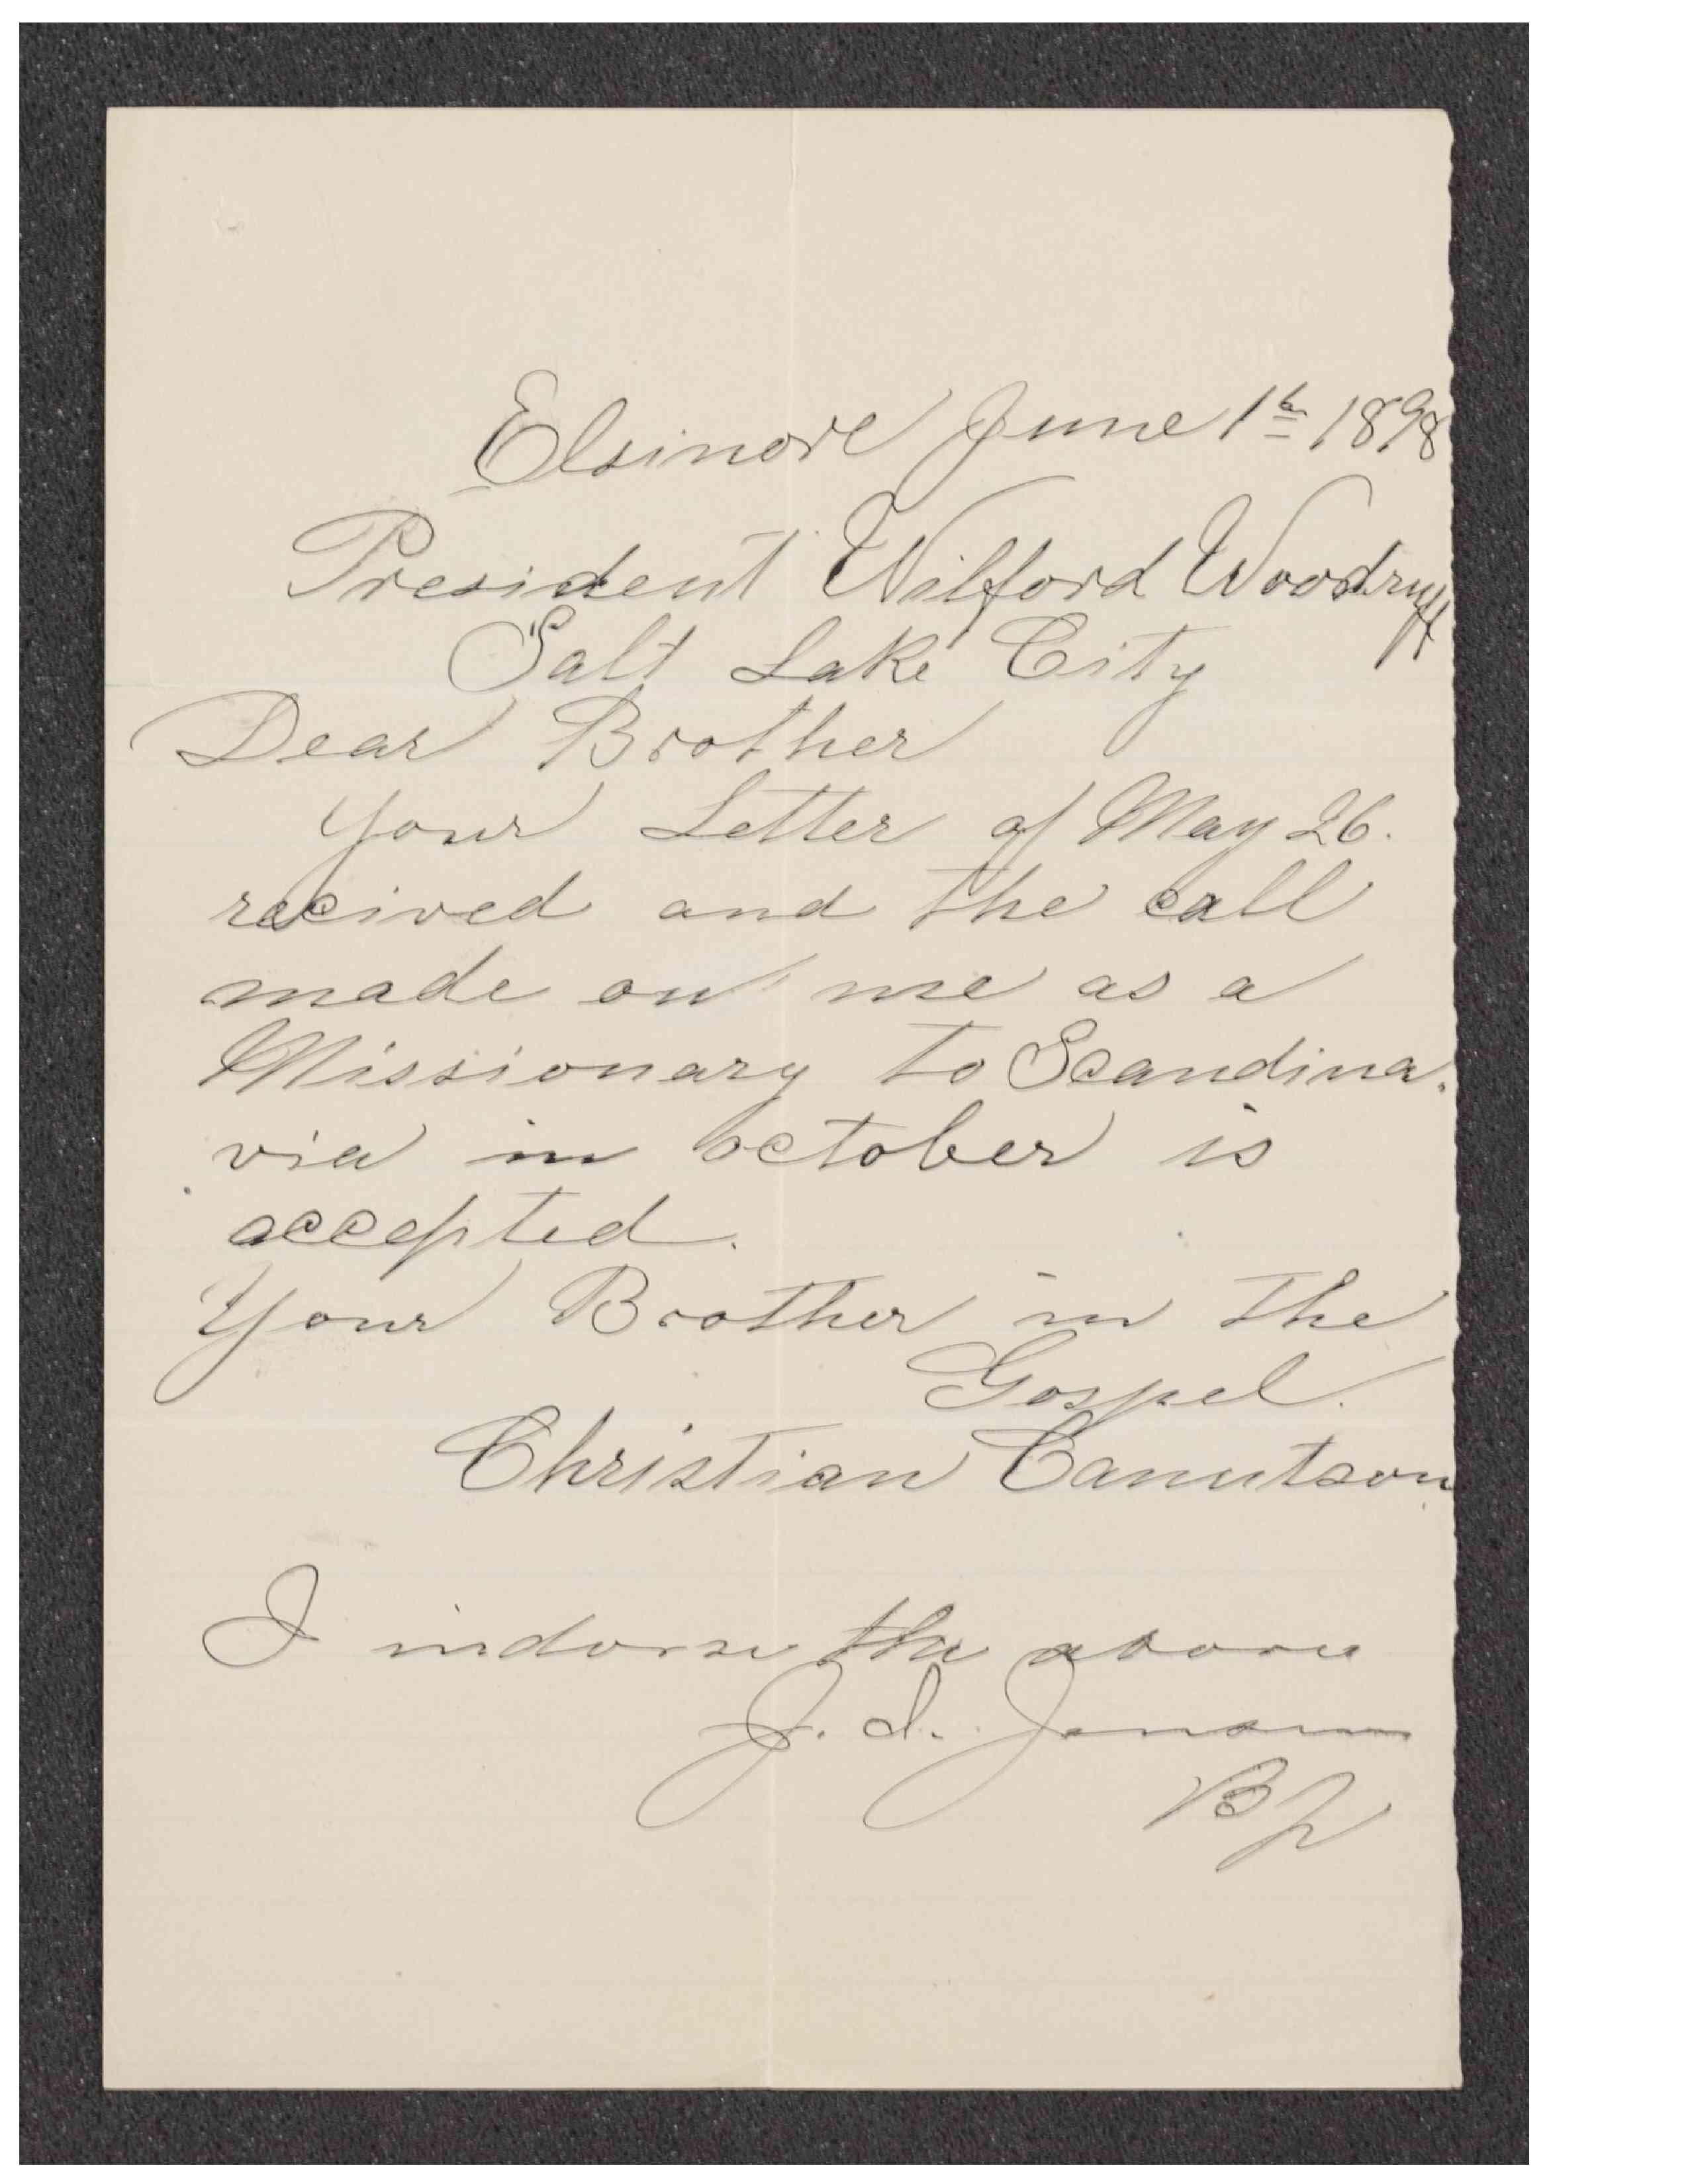 Elsinore June 1st 1898
President Wilford Woodruff
Salt Lake City
Dear Brother
Your Letter of May 26.
recived and the call
made on me as a
Missionary to Scandina-
via in october is
accepted.
Your Brother in the
Gospel.
Christian Canutson
I indorse the above
J. I. Jensen
Bp